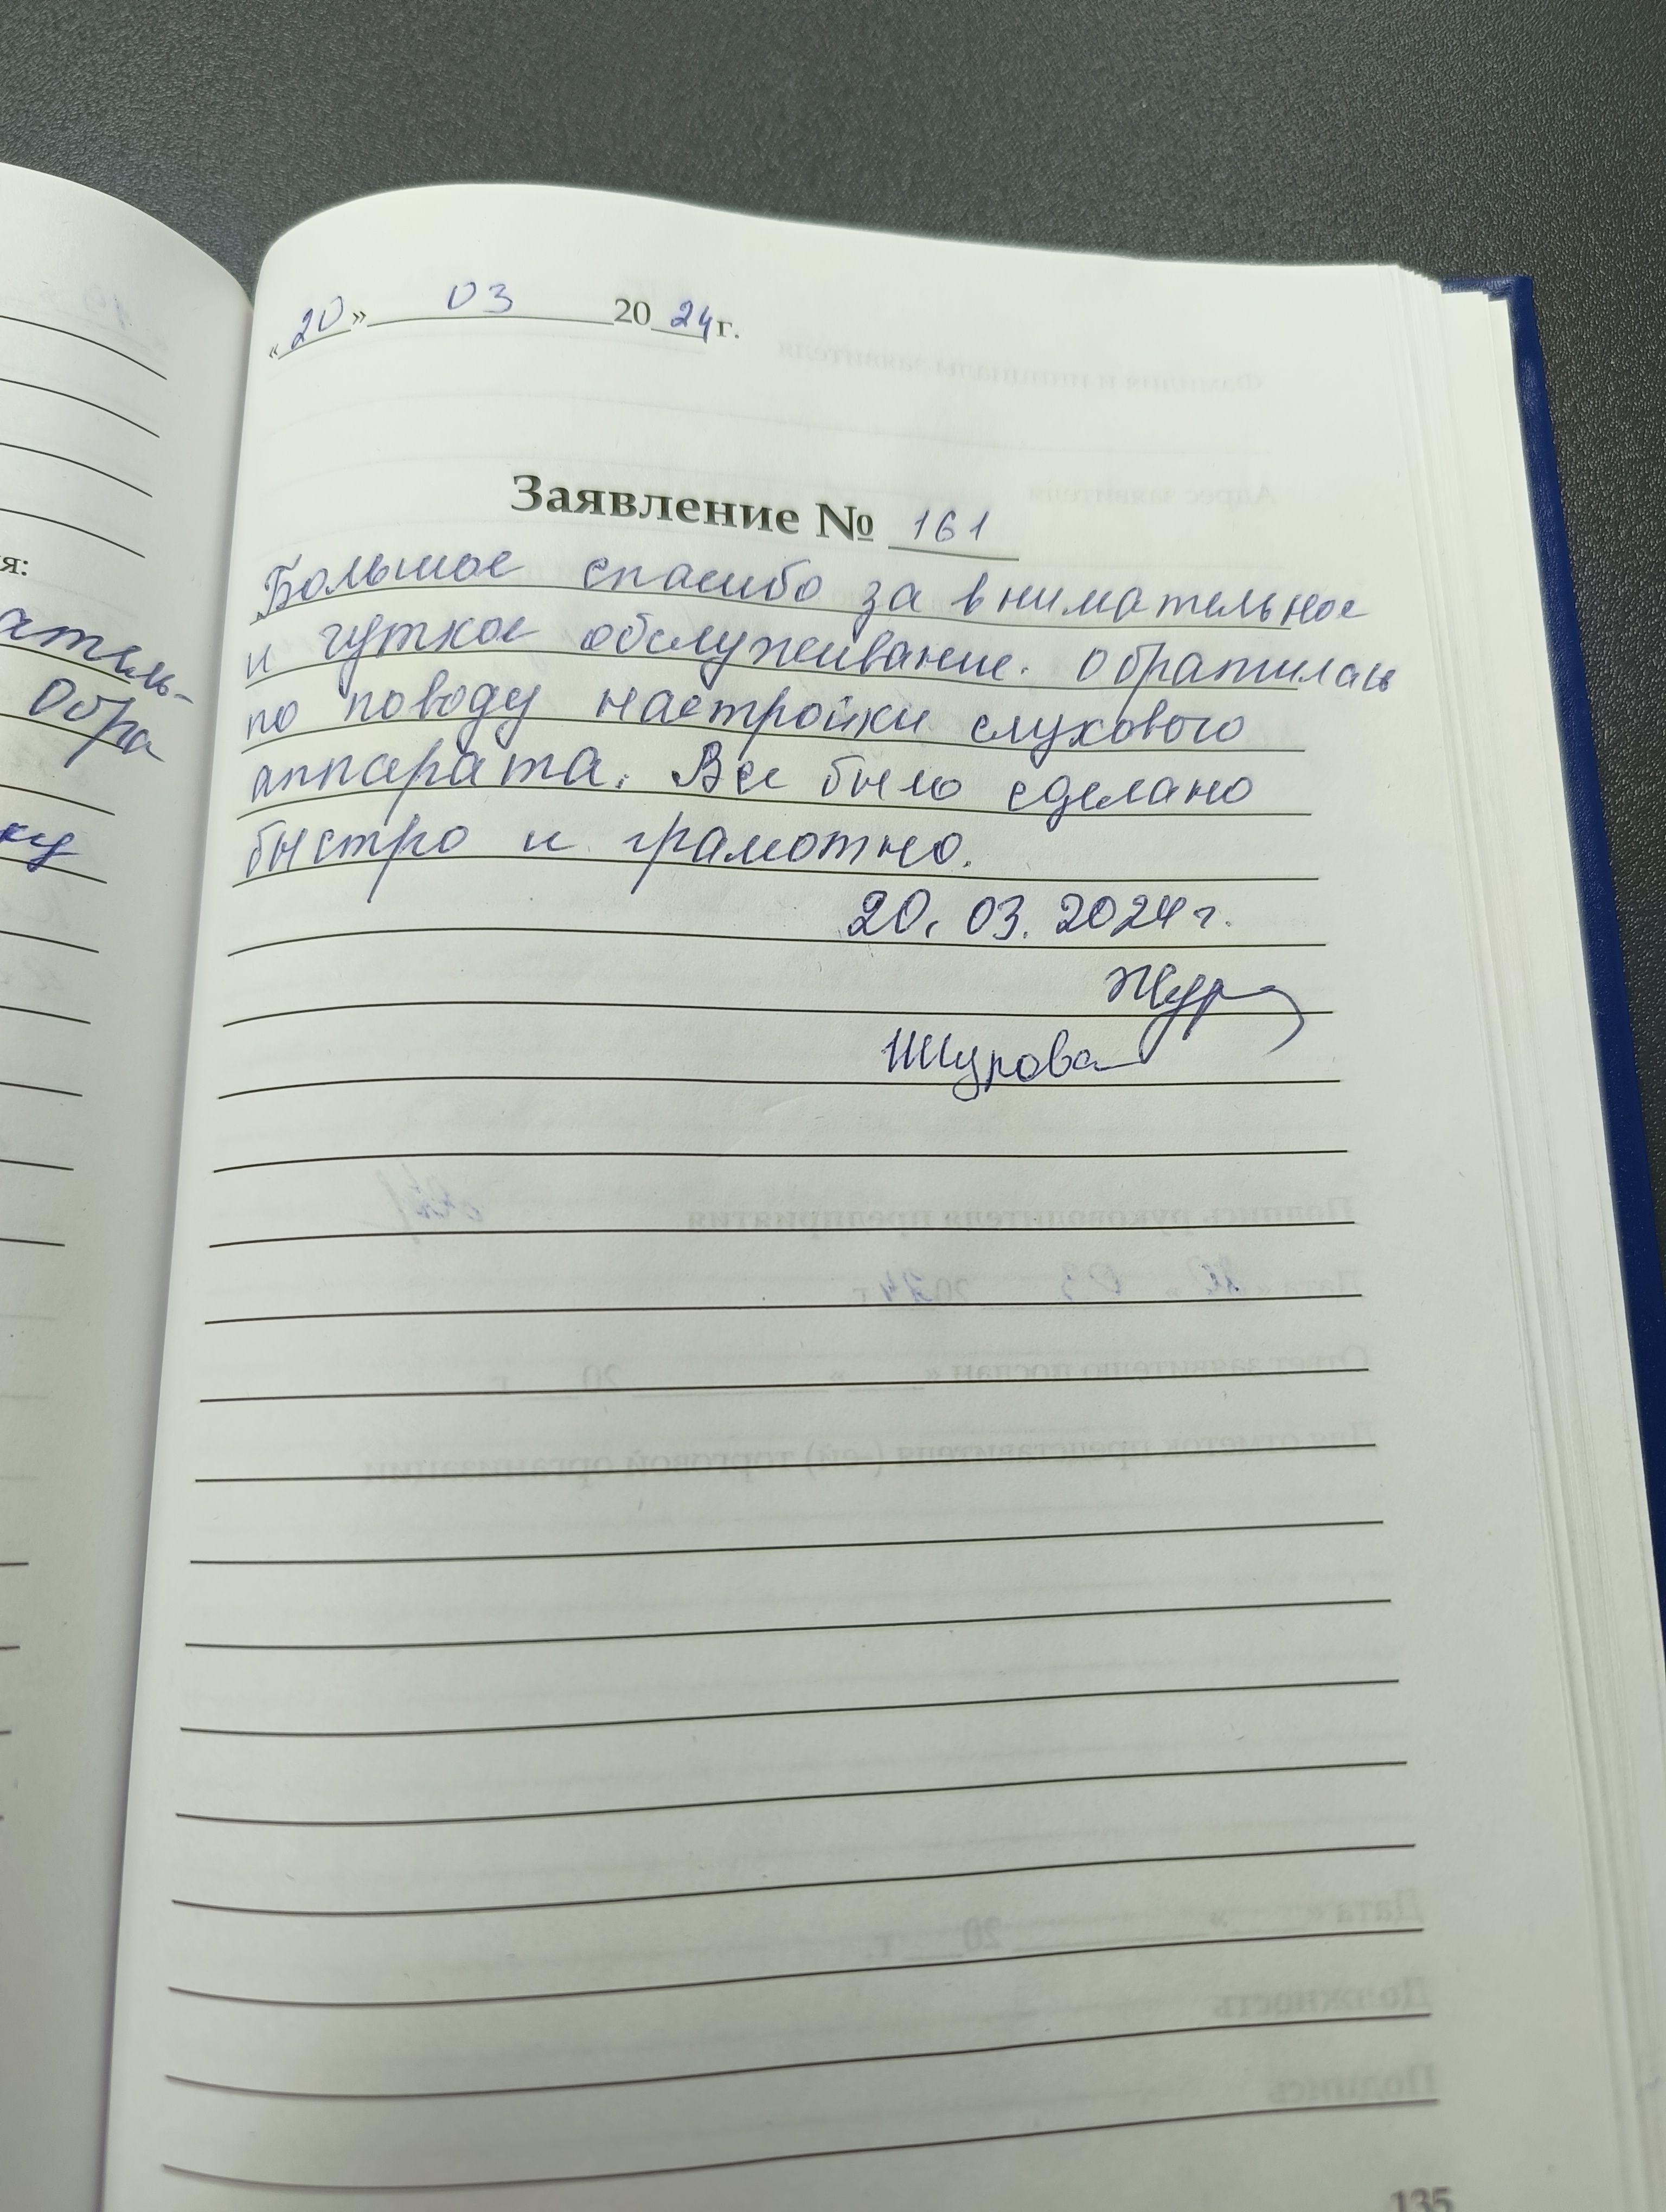 я:
атель-
Обра
ку
«20» 03 2024 г.
Заявление № 161
Большое спасибо за внимательное
и чуткое обслуживание. Обратилась
по поводу настройки слухового
аппарата. Все было сделано
быстро и грамотно.
20.03.2024 г.
Журова
135